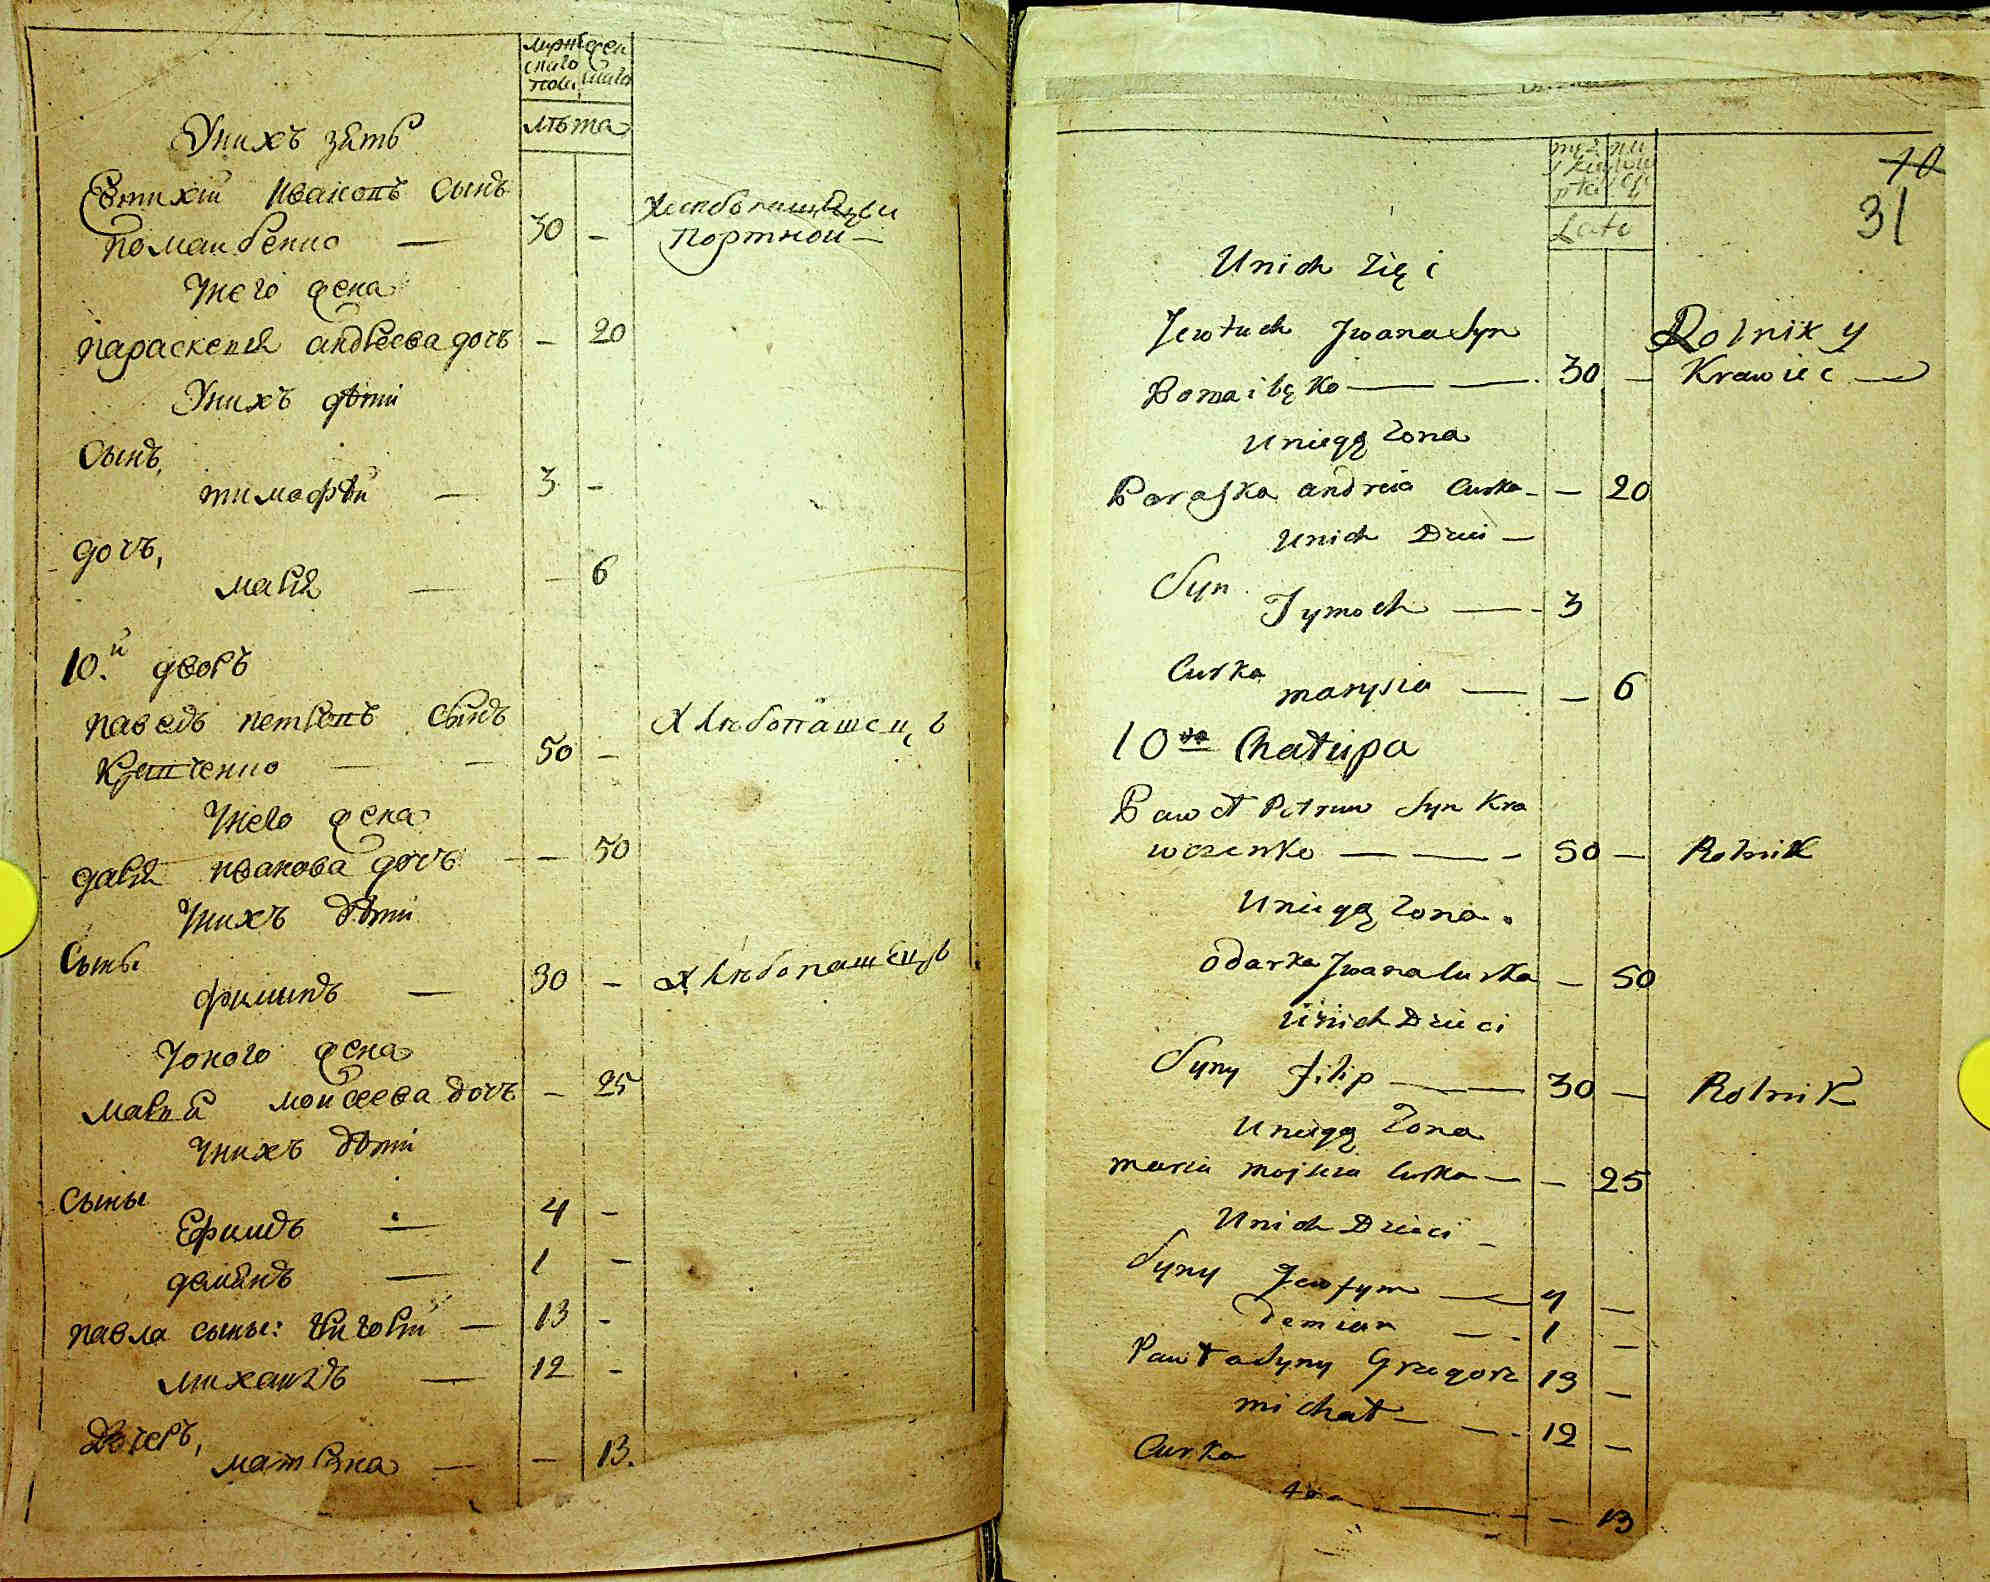 мужескаго полу женскаго
лѣта
Унихъ зять
Евтихїй Ивановъ сынъ
Романенко — 30 —
Портной —
Унего жена
Параскевия андреева дочь — 20
Унихъ дѣти
Сынъ,
тимофѣй — 3 —
дочь,
мария — — 6
10.й дворъ
павелъ петровъ сынъ
Кравченко — — 50 —
Хлѣбопашецъ
Унего жена
дария иванова дочь — — 50
Унихъ дѣти
Сыны
филипъ — 30 — Хлѣбопашецъ
Уоного жена
мария моисеева дочь — 25
Унихъ дѣти
Сыны
Ефимъ — 4 —
демянъ — 1 —
павла сыны: григорий — 13 —
михаилъ — 12 —
Дочерь,
матрена — — 13.
10
31
Lata
Unich Zięć
Jewtuch Jwana Syn
Rolnik y
— — 30 — Krawiec —
Uniegą Zona
Paraska andreia Curka — — 20
Unich Dzieci —
Syn
Tymoch — 3
Curka
marysia — — 6
10ta Chałupa
Paweł Petrow Syn Kra
wczenko — — 50 — Rolnik
Uniegą Zona.
odarka Jwana Curka — 50
Unich Dzieci
Syny Filip — 30 — Rolnik
Uniegą Zona
maria mojseia Curka — — 25
Unich Dzieci —
Syny Jewfym — 4 —
demian — 1 —
Pawła Syny Grzegorz 13 —
michał — — 12 —
Curka
— — 13